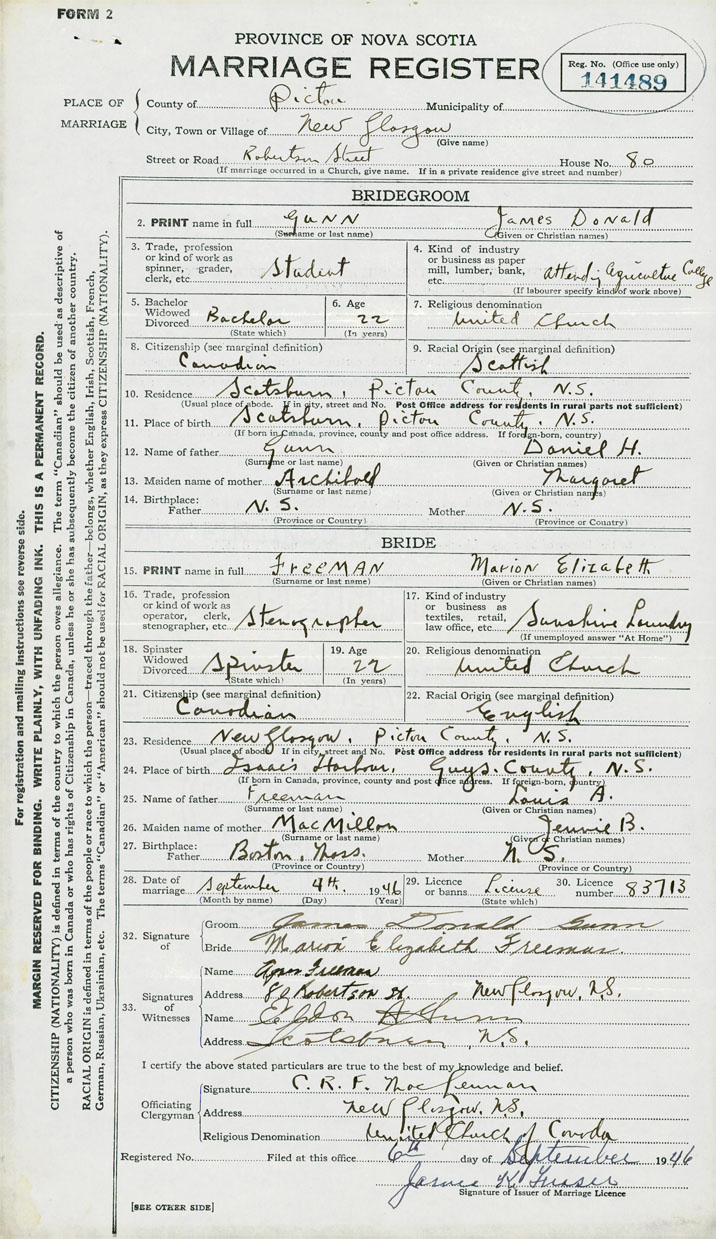 FORM 2
PROVINCE OF NOVA SCOTIA
MARRIAGE REGISTER
Reg. No. (Office use only)
141489
PLACE OF MARRIAGE
County of Pictou Municipality of
City, Town or Village of New Glasgow
(Give name)
Street or Road Robertson Street House No. 80
(If marriage occurred in a Church, give name. If in a private residence give street and number)
BRIDEGROOM
2. PRINT name in full GUNN James Donald
(Surname or last name) (Given or Christian names)
3. Trade, profession or kind of work as spinner, grader, clerk, etc. Student
4. Kind of industry or business as paper mill, lumber, bank, etc. Attending Agriculture College
(If labourer specify kind of work above)
5. Bachelor Widowed Divorced Bachelor
(State which)
6. Age 22
(In years)
7. Religious denomination United Church
8. Citizenship (see marginal definition) Canadian
9. Racial Origin (see marginal definition) Scottish
10. Residence Scotsburn, Pictou County, N.S.
(Usual place of abode. If in city, street and No. Post Office address for residents in rural parts not sufficient)
11. Place of birth Scotsburn, Pictou County, N.S.
(If born in Canada, province, county and post office address. If foreign-born, country)
12. Name of father Gunn Daniel H.
(Surname or last name) (Given or Christian names)
13. Maiden name of mother Archibald Margaret
(Surname or last name) (Given or Christian names)
14. Birthplace: Father N.S. Mother N.S.
(Province or Country) (Province or Country)
BRIDE
15. PRINT name in full FREEMAN Marion Elizabeth
(Surname or last name) (Given or Christian names)
16. Trade, profession or kind of work as operator, clerk, stenographer, etc. Stenographer
17. Kind of industry or business as textiles, retail, law office, etc. Sunshine Laundry
(If unemployed answer "At Home")
18. Spinster Widowed Divorced Spinster
(State which)
19. Age 22
(In years)
20. Religious denomination United Church
21. Citizenship (see marginal definition) Canadian
22. Racial Origin (see marginal definition) English
23. Residence New Glasgow, Pictou County, N.S.
(Usual place of abode. If in city, street and No. Post Office address for residents in rural parts not sufficient)
24. Place of birth Isaac's Harbour, Guys. County, N.S.
(If born in Canada, province, county and post office address. If foreign-born, country)
25. Name of father Freeman Louis A.
(Surname or last name) (Given or Christian names)
26. Maiden name of mother MacMillan Jennie B.
(Surname or last name) (Given or Christian names)
27. Birthplace: Father Boston, Mass. Mother N.S.
(Province or Country) (Province or Country)
28. Date of marriage September 4th. 1946
(Month by name) (Day) (Year)
29. Licence or banns License
(State which)
30. Licence number 83713
32. Signature of
Groom James Donald Gunn
Bride Marion Elizabeth Freeman.
33. Signatures of Witnesses
Name Freeman
Address 80 Robertson St. New Glasgow, N.S.
Name Gunn
Address Scotsburn, N.S.
I certify the above stated particulars are true to the best of my knowledge and belief.
Officiating Clergyman
Signature C. R. F. MacLennan
Address New Glasgow, N.S.
Religious Denomination United Church of Canada
Registered No. Filed at this office 6th day of September 1946
James K. Fraser
Signature of Issuer of Marriage Licence
[SEE OTHER SIDE]
For registration and mailing instructions see reverse side.
MARGIN RESERVED FOR BINDING. WRITE PLAINLY, WITH UNFADING INK. THIS IS A PERMANENT RECORD.
CITIZENSHIP (NATIONALITY) is defined in terms of the country to which the person owes allegiance. The term "Canadian" should be used as descriptive of
a person who was born in Canada or who has rights of Citizenship in Canada, unless he or she has subsequently become the citizen of another country.
RACIAL ORIGIN is defined in terms of the people or race to which the person—traced through the father—belongs, whether English, Irish, Scottish, French,
German, Russian, Ukrainian, etc. The terms "Canadian" or "American" should not be used for RACIAL ORIGIN, as they express CITIZENSHIP (NATIONALITY).